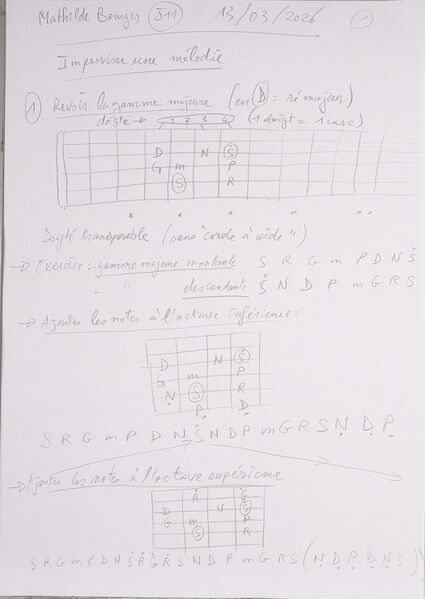 Mathilde Bourges J11 13/03/2026 1
Improviser une mélodie
1 Revoir la gamme majeure (en D = ré majeur)
doigté → 1 2 3 4 (1 doigt = 1 case)
D N Ṡ
G m P
S R
Doigté transposable (sans "corde à vide")
→ Exercice = gamme majeure montante S R G m P D N Ṡ
- " descendante Ṡ N D P m G R S
→ Ajouter les notes à l'octave inférieure =
D N Ṡ
G m P
Ṇ S R
P̣ Ḍ
S R G m P D N Ṡ N D P m G R S Ṇ Ḍ P̣
→ Ajouter les notes à l'octave supérieure
Ṙ Ġ
D N Ṡ
G m P
S R
S R G m P D N Ṡ Ṙ Ġ Ṙ Ṡ N D P m G R S (Ṇ Ḍ P̣ Ḍ Ṇ S)